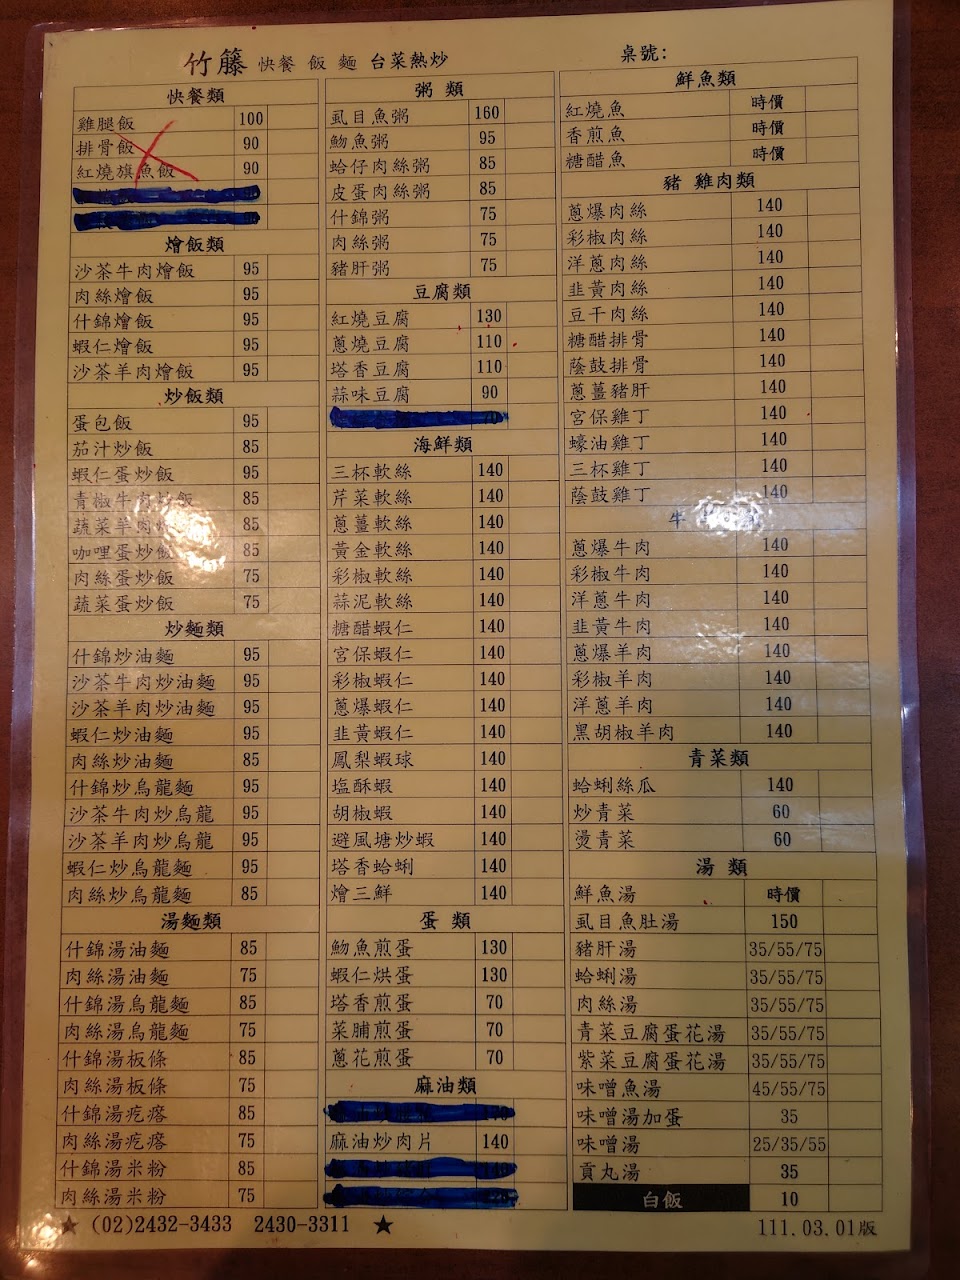 竹籐 快餐 飯 麵 台菜熱炒
桌號:
快餐類
雞腿飯 100
排骨飯 90
紅燒旗魚飯 90
燴飯類
沙茶牛肉燴飯 95
肉絲燴飯 95
什錦燴飯 95
蝦仁燴飯 95
沙茶羊肉燴飯 95
炒飯類
蛋包飯 95
茄汁炒飯 85
蝦仁蛋炒飯 95
青椒牛肉炒飯 85
蔬菜羊肉炒飯 85
咖哩蛋炒飯 85
肉絲蛋炒飯 75
蔬菜蛋炒飯 75
炒麵類
什錦炒油麵 95
沙茶牛肉炒油麵 95
沙茶羊肉炒油麵 95
蝦仁炒油麵 95
肉絲炒油麵 85
什錦炒烏龍麵 95
沙茶牛肉炒烏龍 95
沙茶羊肉炒烏龍 95
蝦仁炒烏龍麵 95
肉絲炒烏龍麵 85
湯麵類
什錦湯油麵 85
肉絲湯油麵 75
什錦湯烏龍麵 85
肉絲湯烏龍麵 75
什錦湯板條 85
肉絲湯板條 75
什錦湯疙瘩 85
肉絲湯疙瘩 75
什錦湯米粉 85
肉絲湯米粉 75
粥 類
虱目魚粥 160
魩魚粥 95
蛤仔肉絲粥 85
皮蛋肉絲粥 85
什錦粥 75
肉絲粥 75
豬肝粥 75
豆腐類
紅燒豆腐 130
蔥燒豆腐 110
塔香豆腐 110
蒜味豆腐 90
70
海鮮類
三杯軟絲 140
芹菜軟絲 140
蔥薑軟絲 140
黃金軟絲 140
彩椒軟絲 140
蒜泥軟絲 140
糖醋蝦仁 140
宮保蝦仁 140
彩椒蝦仁 140
蔥爆蝦仁 140
韭黃蝦仁 140
鳳梨蝦球 140
塩酥蝦 140
胡椒蝦 140
避風塘炒蝦 140
塔香蛤蜊 140
燴三鮮 140
蛋 類
魩魚煎蛋 130
蝦仁烘蛋 130
塔香煎蛋 70
菜脯煎蛋 70
蔥花煎蛋 70
麻油類
麻油炒肉片 140
140
鮮魚類
紅燒魚 時價
香煎魚 時價
糖醋魚 時價
豬 雞肉類
蔥爆肉絲 140
彩椒肉絲 140
洋蔥肉絲 140
韭黃肉絲 140
豆干肉絲 140
糖醋排骨 140
蔭鼓排骨 140
蔥薑豬肝 140
宮保雞丁 140
蠔油雞丁 140
三杯雞丁 140
蔭鼓雞丁 140
牛
蔥爆牛肉 140
彩椒牛肉 140
洋蔥牛肉 140
韭黃牛肉 140
蔥爆羊肉 140
彩椒羊肉 140
洋蔥羊肉 140
黑胡椒羊肉 140
青菜類
蛤蜊絲瓜 140
炒青菜 60
燙青菜 60
湯 類
鮮魚湯 時價
虱目魚肚湯 150
豬肝湯 35/55/75
蛤蜊湯 35/55/75
肉絲湯 35/55/75
青菜豆腐蛋花湯 35/55/75
紫菜豆腐蛋花湯 35/55/75
味噌魚湯 45/55/75
味噌湯加蛋 35
味噌湯 25/35/55
貢丸湯 35
白飯 10
★ (02)2432-3433 2430-3311 ★
111.03.01版